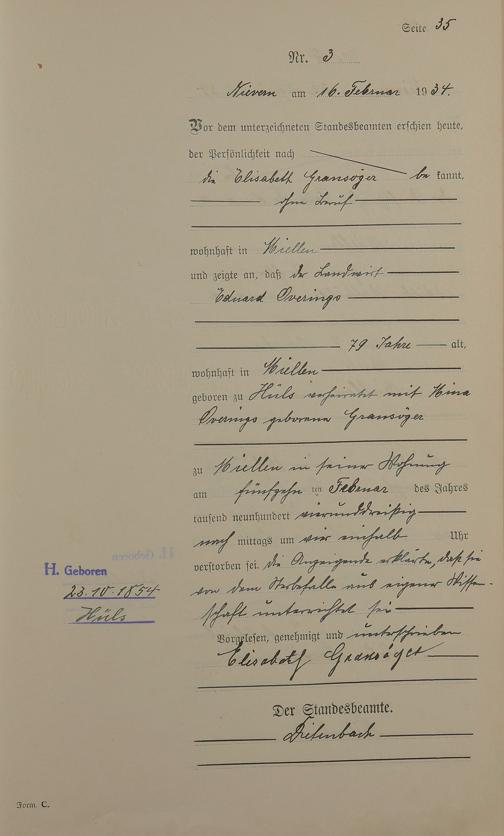 Seite 35
Nr. 3
Nievern am 16. Februar 1934.
Vor dem unterzeichneten Standesbeamten erschien heute,
der Persönlichkeit nach
die Elisabeth Gransöger bekannt,
ohne Beruf
wohnhaft in Miellen
und zeigte an, daß der Landwirt
Eduard Overings
79 Jahre alt,
wohnhaft in Miellen
geboren zu Hüls verheiratet mit Mina
Overings geborene Gransöger
zu Miellen in seiner Wohnung
am fünfzehnten Februar des Jahres
tausend neunhundert vierunddreißig
nachmittags um vier einhalb Uhr
verstorben sei. die Anzeigende erklärte, daß sie
von dem Sterbefalle aus eigener Wissen-
schaft unterrichtet sei
Vorgelesen, genehmigt und unterschrieben
Elisabeth Gransöger
Der Standesbeamte.
H. Geboren
23.10.1854
Hüls
Form. C.